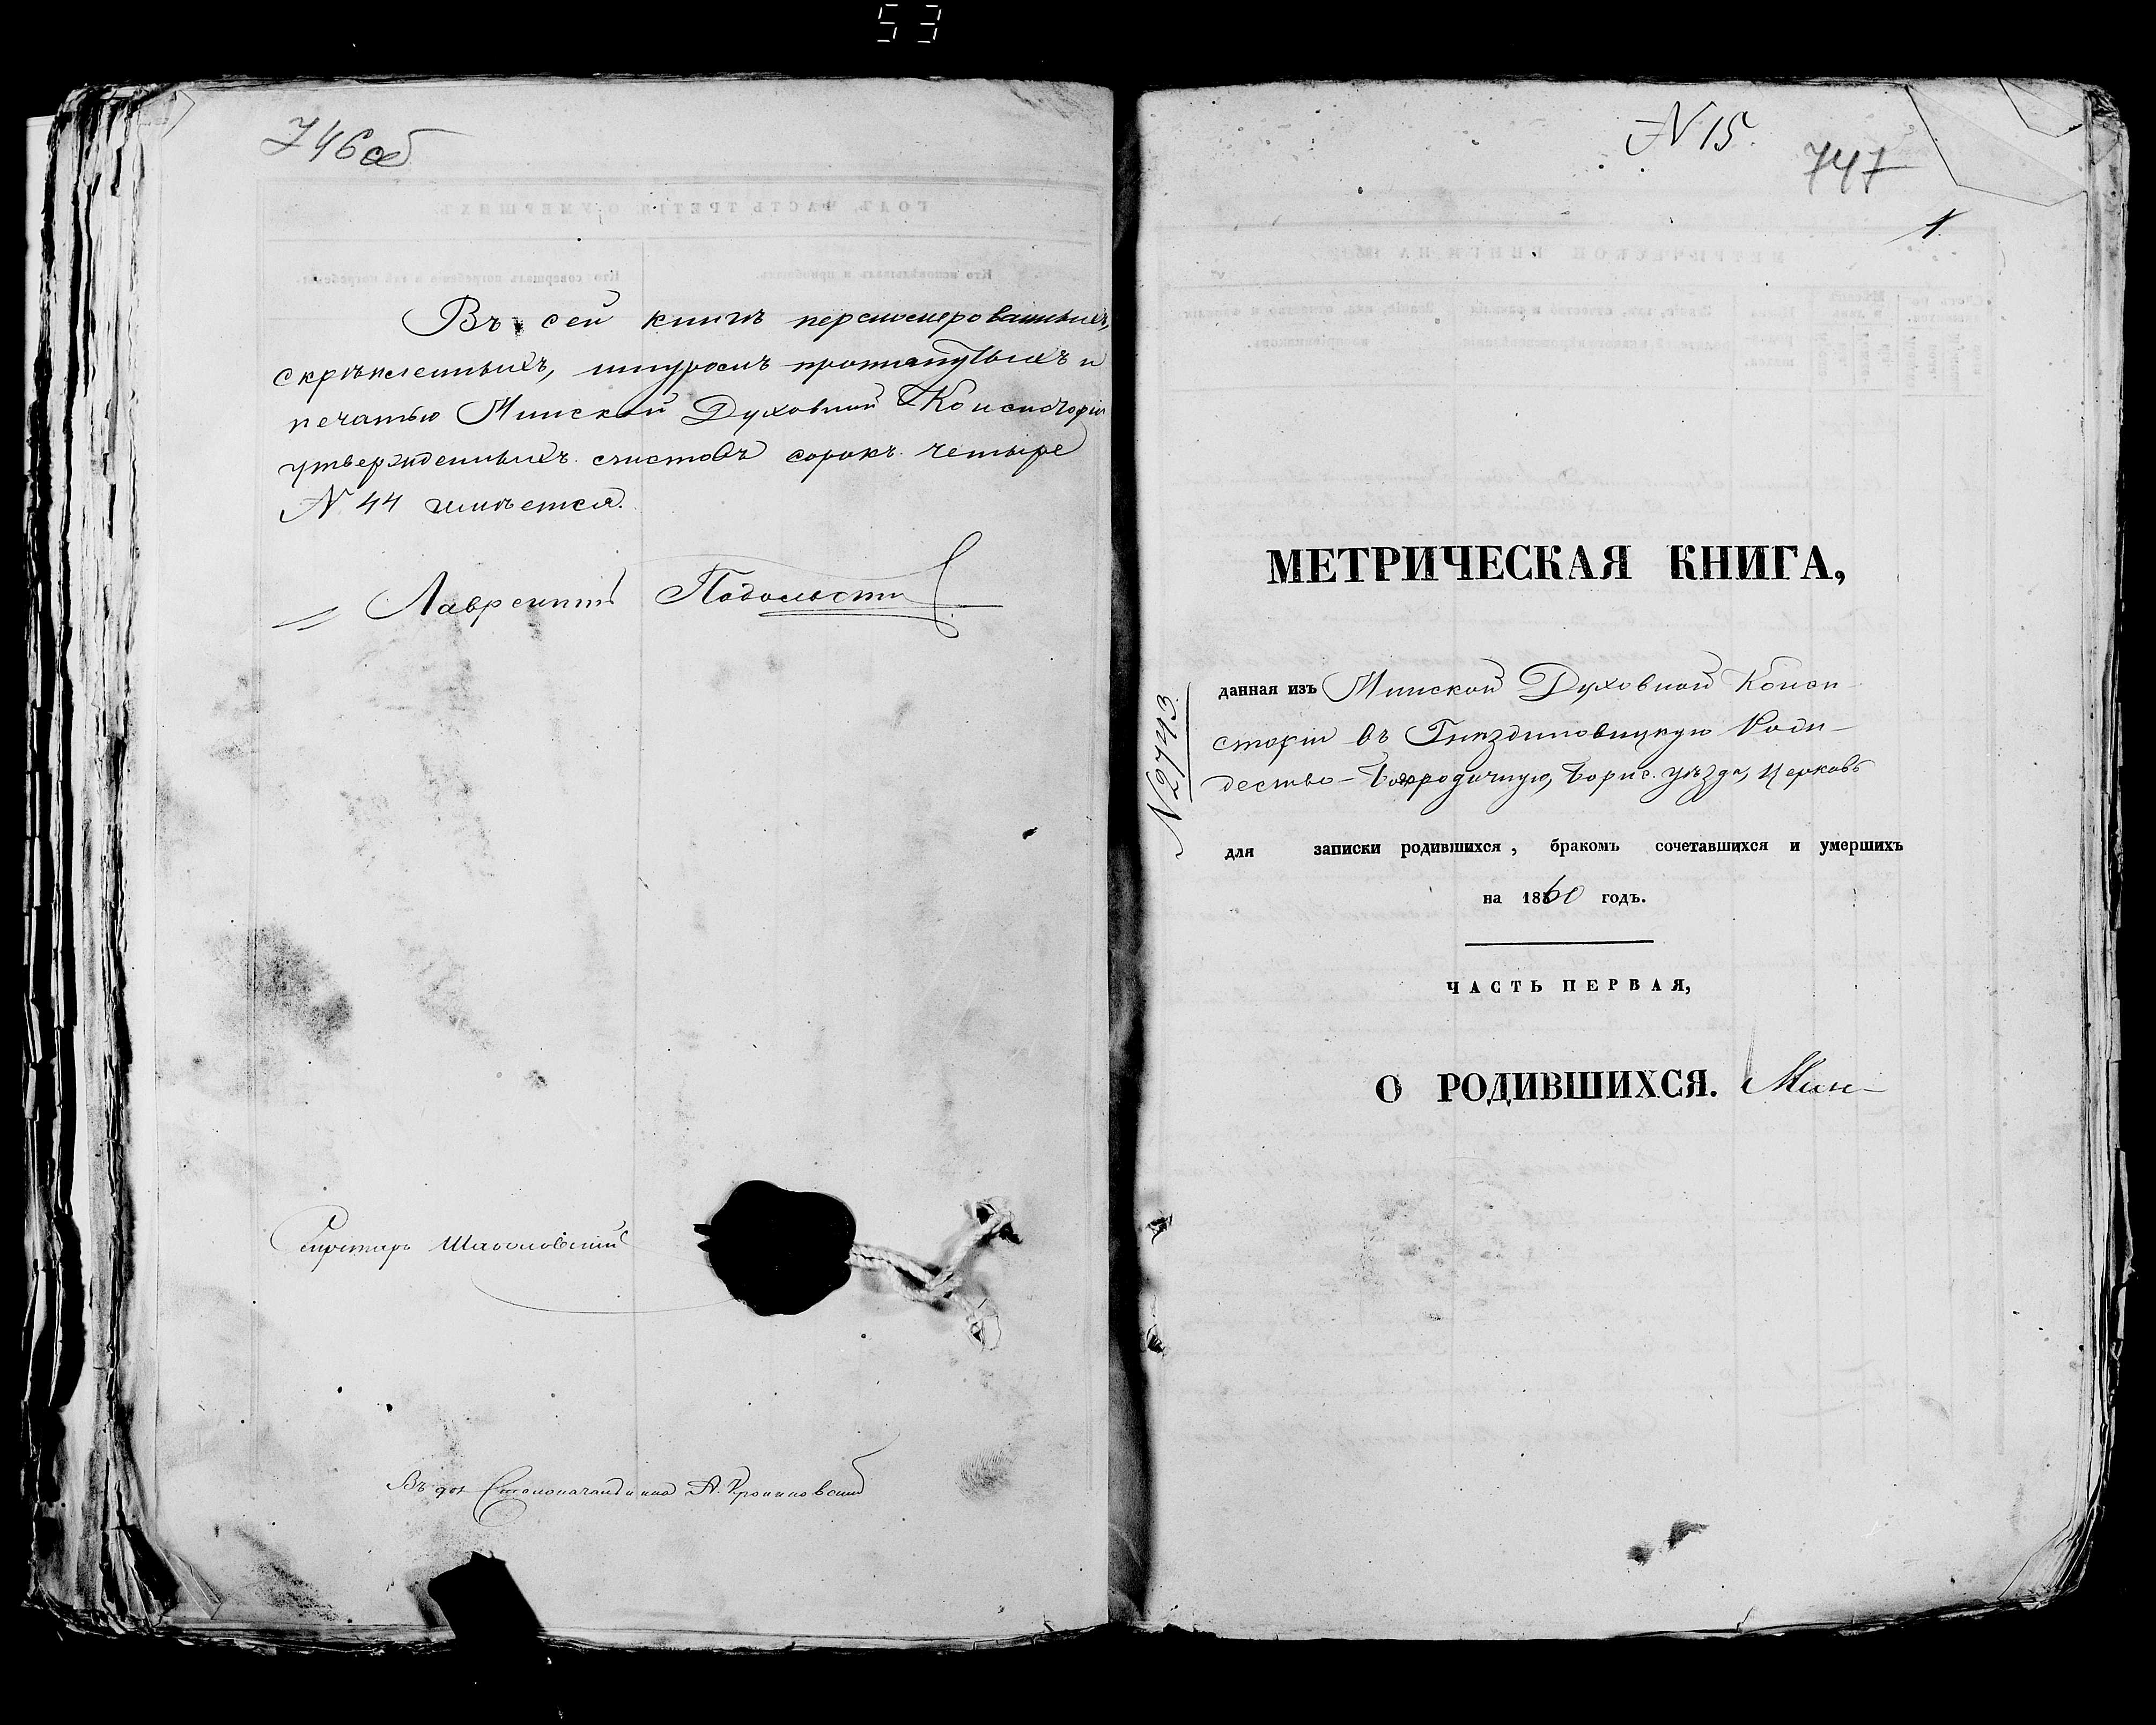 53
746об
Въ сей книгѣ перенумерованныхъ,
скрѣпленныхъ, шнуромъ протянутыхъ и
печатью Минской Духовной Консисторіи
утвержденныхъ листовъ сорокъ четыре
№ 44 имѣется.
Лаврентій
Секретарь
Въ дол Столоначальника А.
N 15.
747
1
МЕТРИЧЕСКАЯ КНИГА,
N 2743
данная изъ Минской Духовной Конси-
сторіи въ Гнѣздиловицкую Рож-
дество-Богородичную, Борис. уѣзда, Церковь
для записки родившихся, бракомъ сочетавшихся и умершихъ
на 1860 годъ.
ЧАСТЬ ПЕРВАЯ,
О РОДИВШИХСЯ.